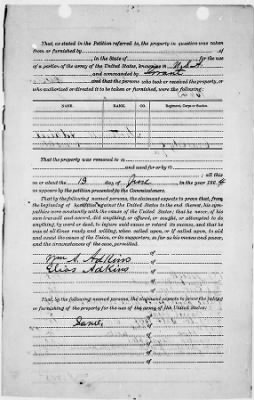 That, as stated in the Petition referred to, the property in question was taken
from or furnished by of
in the State of for the use
of a portion of the army of the United States, known as U.S.A.
and commanded by Grant
and that the persons who took or received the property, or
who authorized or directed it to be taken or furnished, were the following:
NAME. RANK. CO. Regiment, Corps or Station.
That the property was removed to
and used for or by
; all this
on or about the 13 day of June in the year 186
as appears by the petition presented to the Commissioners.
That by the following named persons, the claimant expects to prove that, from
the beginning of hostilities against the United States to the end thereof, his sym-
pathies were constantly with the cause of the United States; that he never, of his
own free will and accord, did anything, or offered, or sought, or attempted to do
anything, by word or deed, to injure said cause or retard its success, and that he
was at all times ready and willing, when called upon, or if called upon, to aid
and assist the cause of the Union, or its supporters, as far as his means and power,
and the circumstances of the case, permitted.
Wm A. Adkins of
Elias Adkins of
of
of
of
of
of
That, by the following named persons, the claimant expects to prove the taking
or furnishing of the property for the use of the army of the United States:
Same of
of
of
of
of